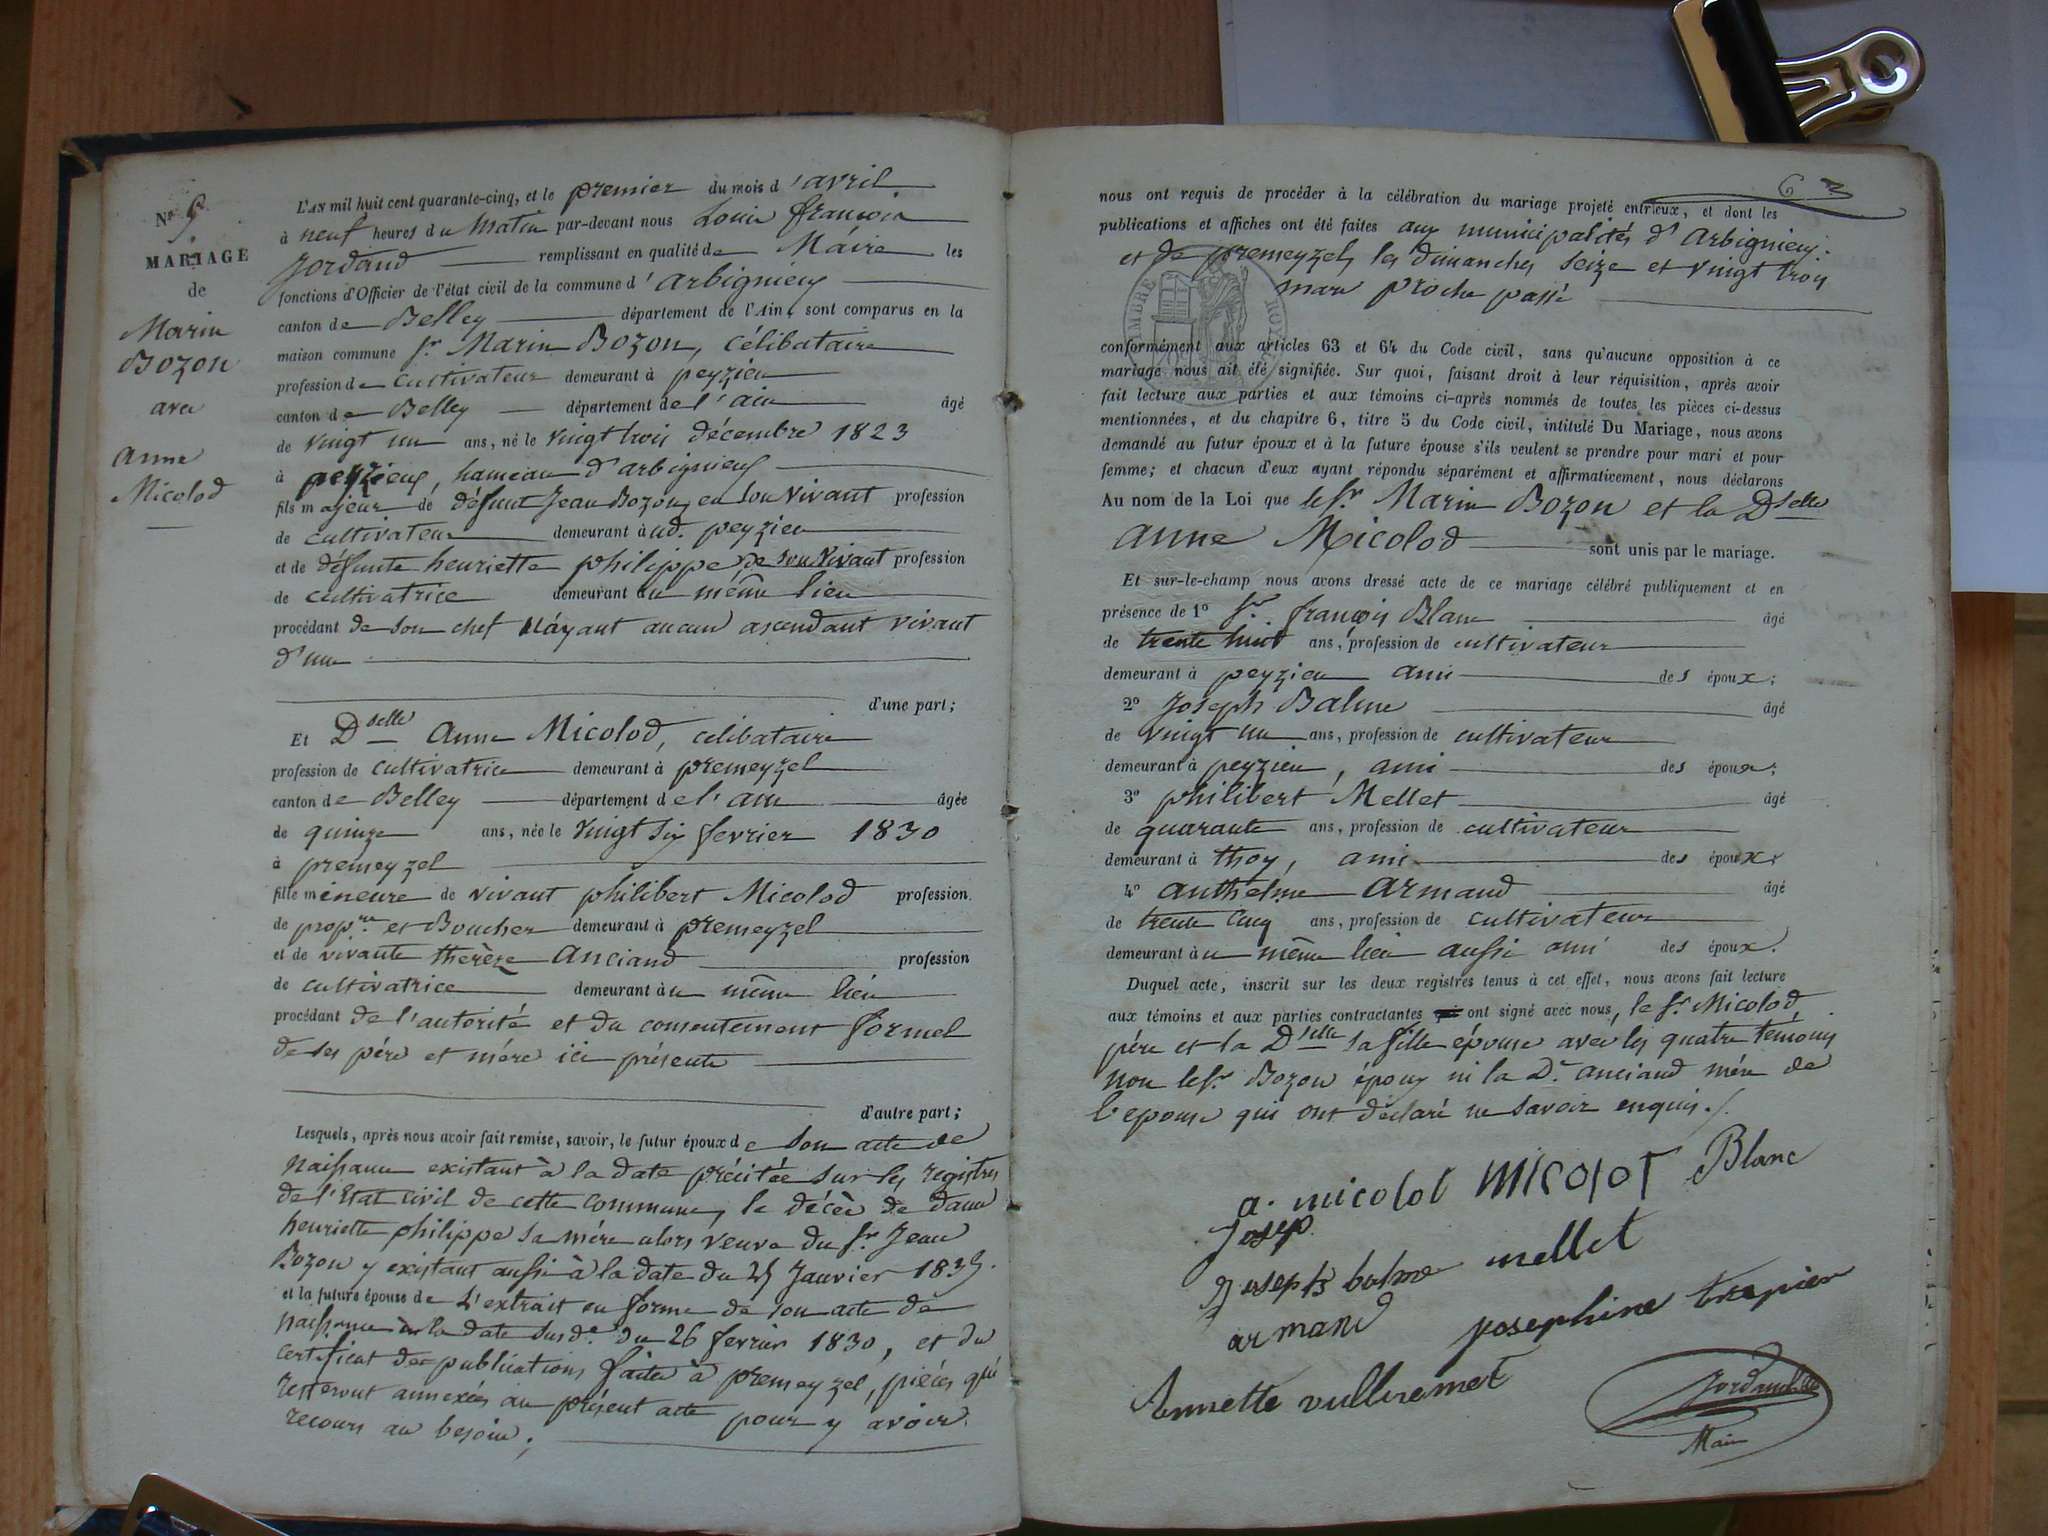 N° 5
MARIAGE
de
Marin
Bozon
avec
Anne
Micolod
L'AN mil huit cent quarante-cinq, et le premier du mois d'avril
à neuf heures du Matin par-devant nous Louis françois
Jordand remplissant en qualité de Maire les
fonctions d'Officier de l'état civil de la commune d'arbignieu
canton de Belley département de l'Ain, sont comparus en la
maison commune Sr Marin Bozon, célibataire
profession de cultivateur demeurant à peyzieu
canton de Belley département de l'ain âgé
de vingt un ans, né le vingt trois décembre 1823
à peyzieu, hameau d'arbignieu
fils majeur de défunt Jean Bozon, en son vivant profession
de cultivateur demeurant aud. peyzieu
et de défunte henriette philippe de son vivant profession
de cultivatrice demeurant au même lieu
procédant de son chef n'ayant aucun ascendant vivant
d'une
d'une part;
Et Dselle Anne Micolod, célibataire
profession de cultivatrice demeurant à premeyzel
canton de Belley département de l'ain âgée
de quinze ans, née le vingt six fevrier 1830
à premeyzel
fille mineure de vivant philibert Micolod profession
de propre et Boucher demeurant à premeyzel
et de vivante therèze Anciand profession
de cultivatrice demeurant au même lieu
procédant de l'autorité et du consentement formel
de ses père et mère ici présents
d'autre part;
Lesquels, après nous avoir fait remise, savoir, le futur époux de son acte de
naissance existant à la date précitée sur les registres
de l'Etat civil de cette commune, le décès de dame
henriette philippe sa mère alors veuve du Sr Jean
Bozon y existant aussi à la date du 25 Janvier
et la future épouse de L'extrait en forme de son acte de
naissance à la date susde du 26 fevrier 1830, et du
certificat de publications faites à premeyzel, pièces qui
resteront annexées au présent acte pour y avoir
recours au besoin;
6
nous ont requis de procéder à la célébration du mariage projeté entr'eux, et dont les
publications et affiches ont été faites aux municipalités d'arbignieu
et de premeyzel, les dimanches seize et vingt trois
mars proche passé
conformément aux articles 63 et 64 du Code civil, sans qu'aucune opposition à ce
mariage nous ait été signifiée. Sur quoi, faisant droit à leur réquisition, après avoir
fait lecture aux parties et aux témoins ci-après nommés de toutes les pièces ci-dessus
mentionnées, et du chapitre 6, titre 5 du Code civil, intitulé Du Mariage, nous avons
demandé au futur époux et à la future épouse s'ils veulent se prendre pour mari et pour
femme; et chacun d'eux ayant répondu séparément et affirmativement, nous déclarons
Au nom de la Loi que le Sr Marin Bozon et la Dselle
anne Micolod sont unis par le mariage.
Et sur-le-champ nous avons dressé acte de ce mariage célébré publiquement et en
présence de 1° Sr françois Blanc âgé
de trente huit ans, profession de cultivateur
demeurant à peyzieu ami des époux;
2° Joseph Balme âgé
de vingt un ans, profession de cultivateur
demeurant à peyzieu, ami des époux;
3° philibert Mellet âgé
de quarante ans, profession de cultivateur
demeurant à thoy, ami des époux
4° anthelme armand âgé
de trente cinq ans, profession de cultivateur
demeurant au même lieu aussi ami des époux.
Duquel acte, inscrit sur les deux registres tenus à cet effet, nous avons fait lecture
aux témoins et aux parties contractantes ont signé avec nous, le Sr Micolod
père et la Dselle sa fille épouse avec les quatre témoins
non le Sr Bozon époux ni la De anciand mère de
l'epouse qui ont déclaré ne savoir enquis.
a. micolot MICOLOT Blanc
Josep
Joseph balme mellet
armand josephine trepier
Annette vulliremet
Jordand
Maire